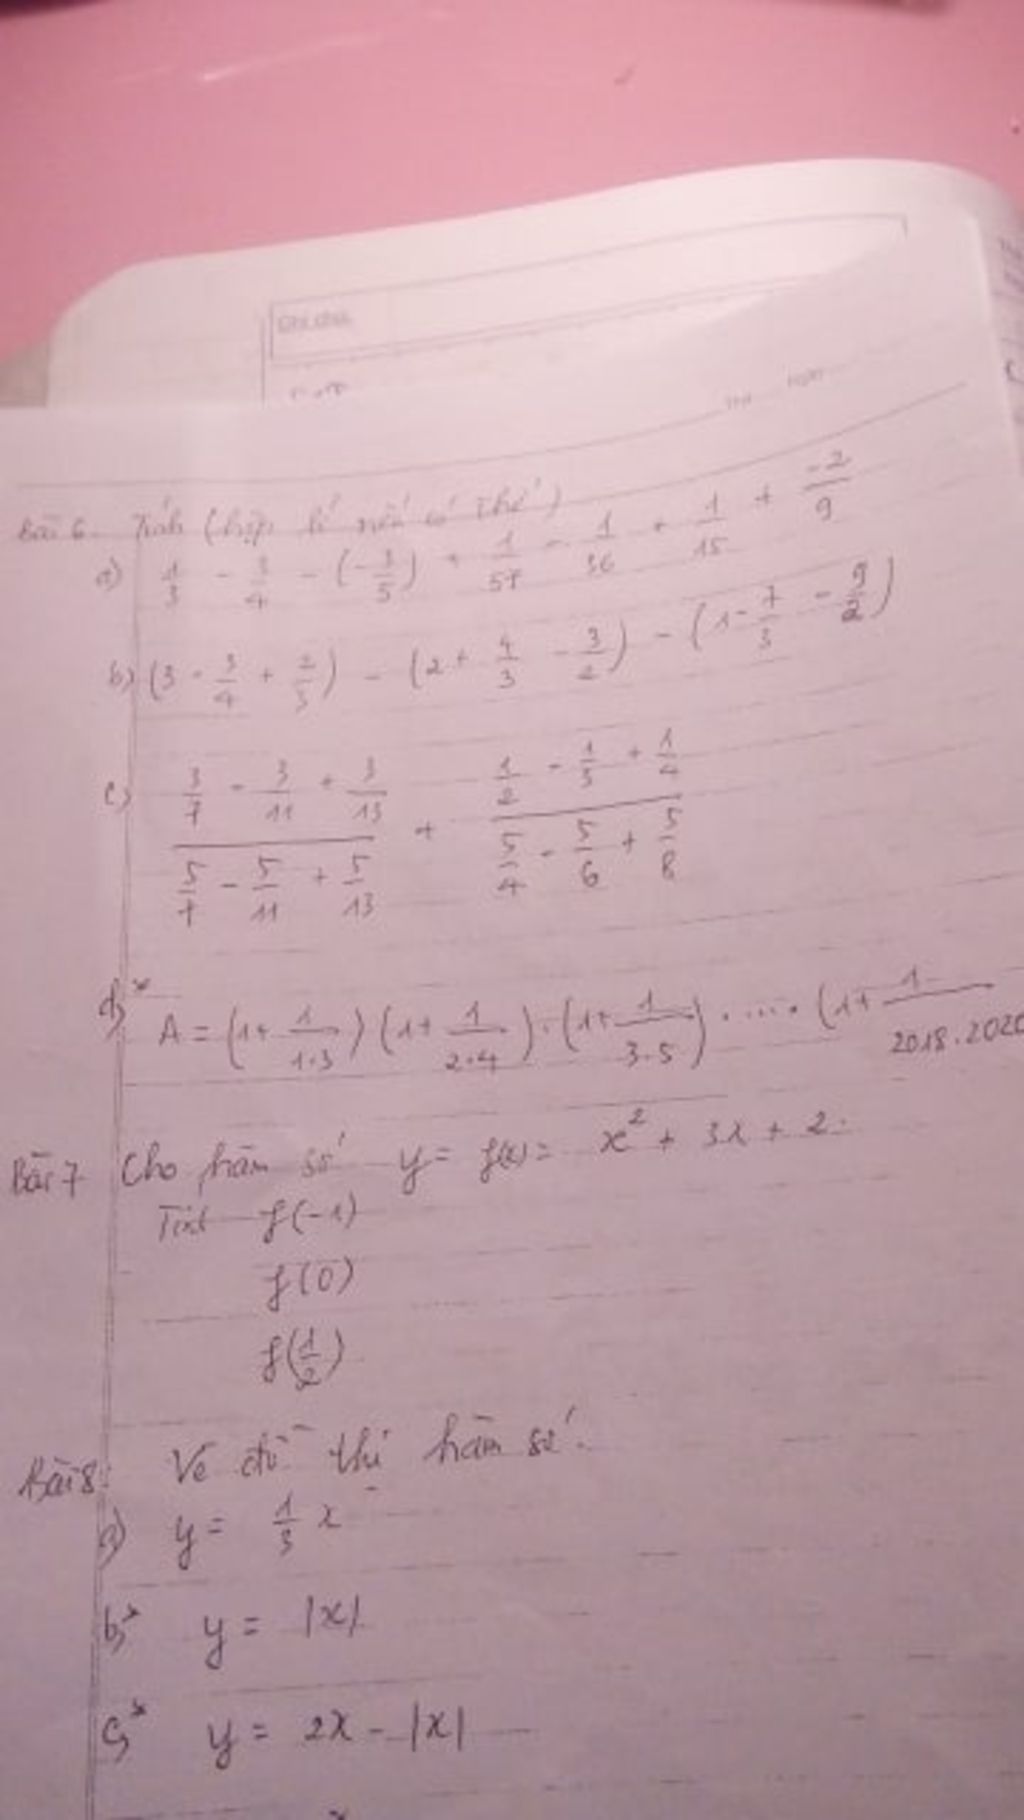 Ghi chú
Bài 6. Tính (hợp lí nếu có thể)
a) 1/3 - 3/4 - (-3/5) + 1/57 - 1/36 + 1/15 + -2/9
b) (3 - 3/4 + 2/3) - (2 + 4/3 - 3/2) - (1 - 7/3 - 9/2)
c) (3/7 - 3/11 + 3/13)/(5/7 - 5/11 + 5/13) + (1/2 - 1/3 + 1/4)/(5/4 - 5/6 + 5/8)
d)* A = (1 + 1/1.3) (1 + 1/2.4) . (1 + 1/3.5) . .... . (1 + 1/2018.2020
Bài 7 Cho hàm số y = f(x) = x² + 3x + 2.
Tính f(-1)
f(0)
f(1/2)
Bài 8: Vẽ đồ thị hàm số.
a) y = 1/3 x
b)* y = |x|
c)* y = 2x - |x|